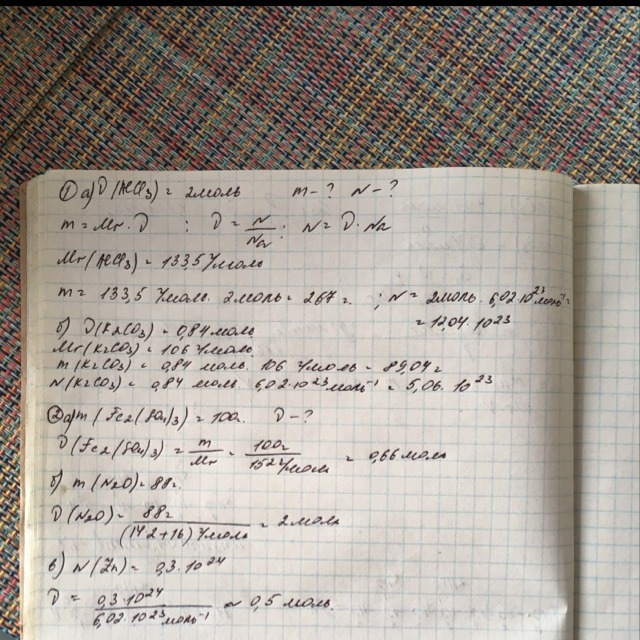 ① а) D (AlCl3) = 2моль   m - ?   N - ?
m = Mr · D ; D = N/Na ; N = D · Na
Mr (AlCl3) = 133,5 г/моль
m = 133,5 г/моль · 2моль = 267 г. ; N = 2моль · 6,02 · 10^23 моль^-1 =
= 12,04 · 10^23
б) D(K2CO3) = 0,84 моль
Mr(K2CO3) = 106 г/моль
m(K2CO3) = 0,84 моль · 106 г/моль = 89,04 г
N(K2CO3) = 0,84 моль · 6,02 · 10^23 моль^-1 = 5,06 · 10^23
② а) m (Fe2(SO4)3) = 100г.   D - ?
D (Fe2(SO4)3) = m/Mr = 100г/152 г/моль = 0,66 моль
б) m (N2O) = 88г.
D (N2O) = 88г/(14·2+16) г/моль = 2моль
в) N (Zn) = 0,3 · 10^24
D = 0,3 · 10^24/6,02 · 10^23 моль^-1 ≈ 0,5 моль.